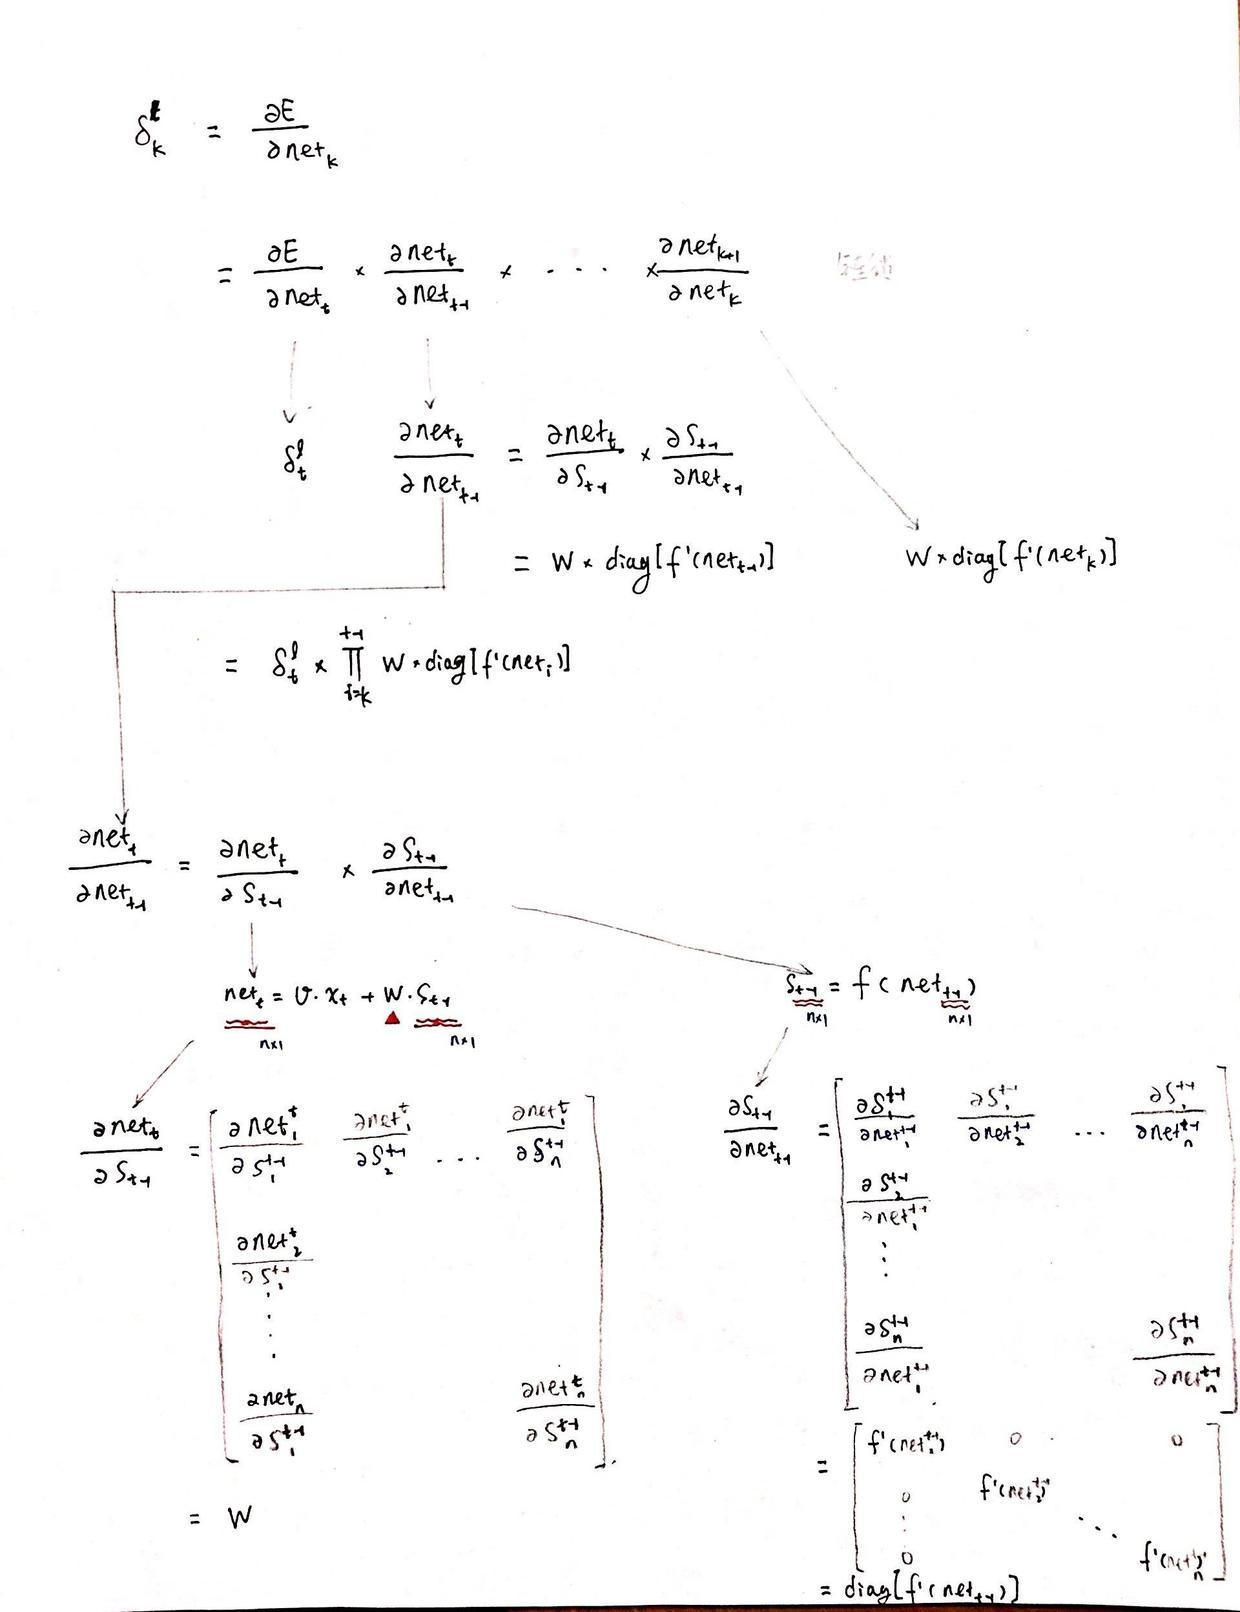 δₖᵗ = ∂E/∂netₖ
= ∂E/∂netₜ × ∂netₜ/∂netₜ₋₁ × · · · × ∂netₖ₊₁/∂netₖ
δₜˡ
∂netₜ/∂netₜ₋₁ = ∂netₜ/∂Sₜ₋₁ × ∂Sₜ₋₁/∂netₜ₋₁
= W × diag[f'(netₜ₋₁)]
W × diag[f'(netₖ)]
= δₜˡ × ∏_{i=k}^{t-1} W × diag[f'(netᵢ)]
∂netₜ/∂netₜ₋₁ = ∂netₜ/∂Sₜ₋₁ × ∂Sₜ₋₁/∂netₜ₋₁
netₜ = U · xₜ + W · Sₜ₋₁
n×1 n×1
Sₜ₋₁ = f(netₜ₋₁)
n×1 n×1
∂netₜ/∂Sₜ₋₁ = [ ∂net₁ᵗ/∂S₁ᵗ⁻¹ ∂net₁ᵗ/∂S₂ᵗ⁻¹ . . . ∂net₁ᵗ/∂Sₙᵗ⁻¹
∂net₂ᵗ/∂S₁ᵗ⁻¹
⋮
∂netₙ/∂S₁ᵗ⁻¹ ∂netₙᵗ/∂Sₙᵗ⁻¹ ]
= W
∂Sₜ₋₁/∂netₜ₋₁ = [ ∂S₁ᵗ⁻¹/∂net₁ᵗ⁻¹ ∂S₁ᵗ⁻¹/∂net₂ᵗ⁻¹ . . . ∂S₁ᵗ⁻¹/∂netₙᵗ⁻¹
∂S₂ᵗ⁻¹/∂net₁ᵗ⁻¹
⋮
∂Sₙᵗ⁻¹/∂net₁ᵗ⁻¹ ∂Sₙᵗ⁻¹/∂netₙᵗ⁻¹ ]
= [ f'(net₁ᵗ⁻¹) 0 · 0
0 f'(net₂ᵗ⁻¹)
⋮ . . .
0 f'(netₙᵗ⁻¹) ]
= diag[f'(netₜ₋₁)]